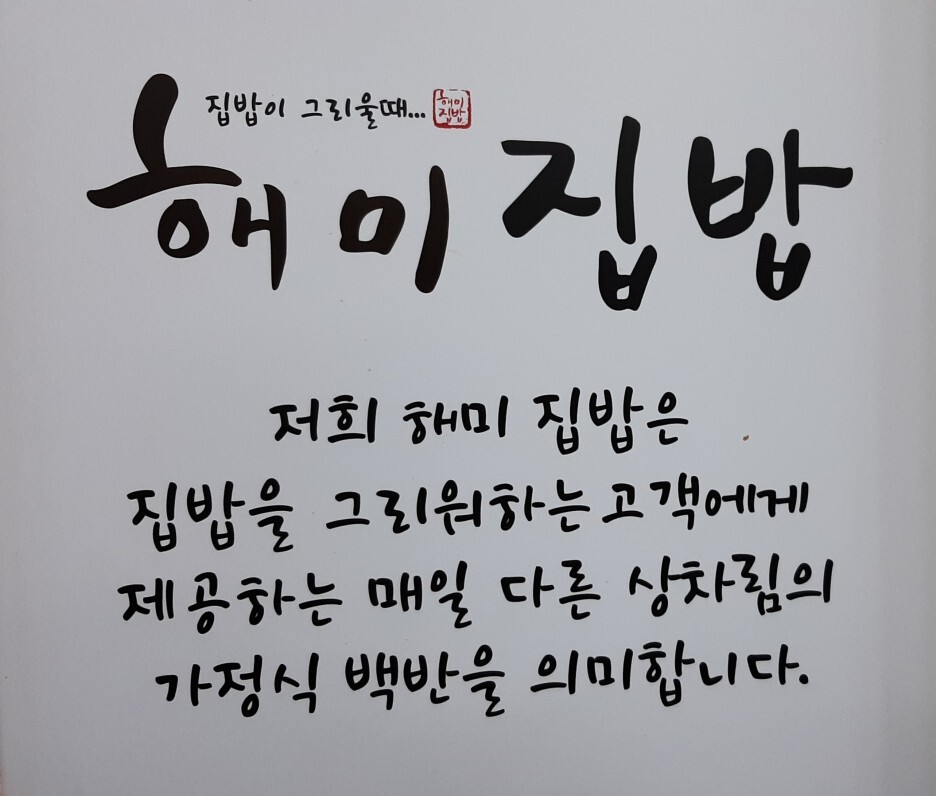 집밥이 그리울때...
해미
집밥
해미집밥
저희 해미 집밥은
집밥을 그리워하는 고객에게
제공하는 매일 다른 상차림의
가정식 백반을 의미합니다.